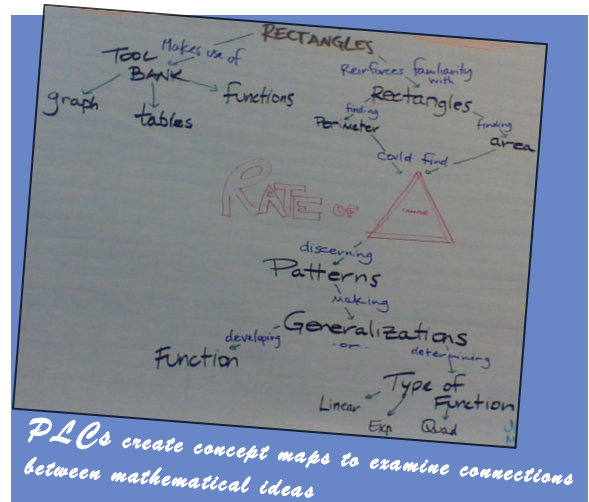 RECTANGLES
Makes use of
TOOL
BANK
graph
tables
functions
Reinforces familiarity
with
Rectangles
finding
Perimeter
finding
area
could find
RATE OF
CHANGE
discerning
Patterns
making
Generalizations
developing
or
determining
Function
Type of
Function
Linear
Exp
Quad
PLCs create concept maps to examine connections
between mathematical ideas